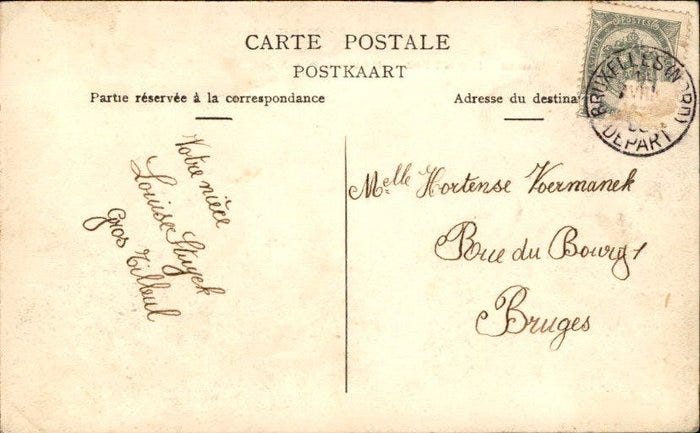 CARTE POSTALE
POSTKAART
Partie réservée à la correspondance
Adresse du destina
POSTES
BRUXELLES (NORD)
DEPART
Votre nièce
Louise Stuyck
Gros Tilleul
Melle Hortense Voermanek
Rue du Bourg 1
Bruges